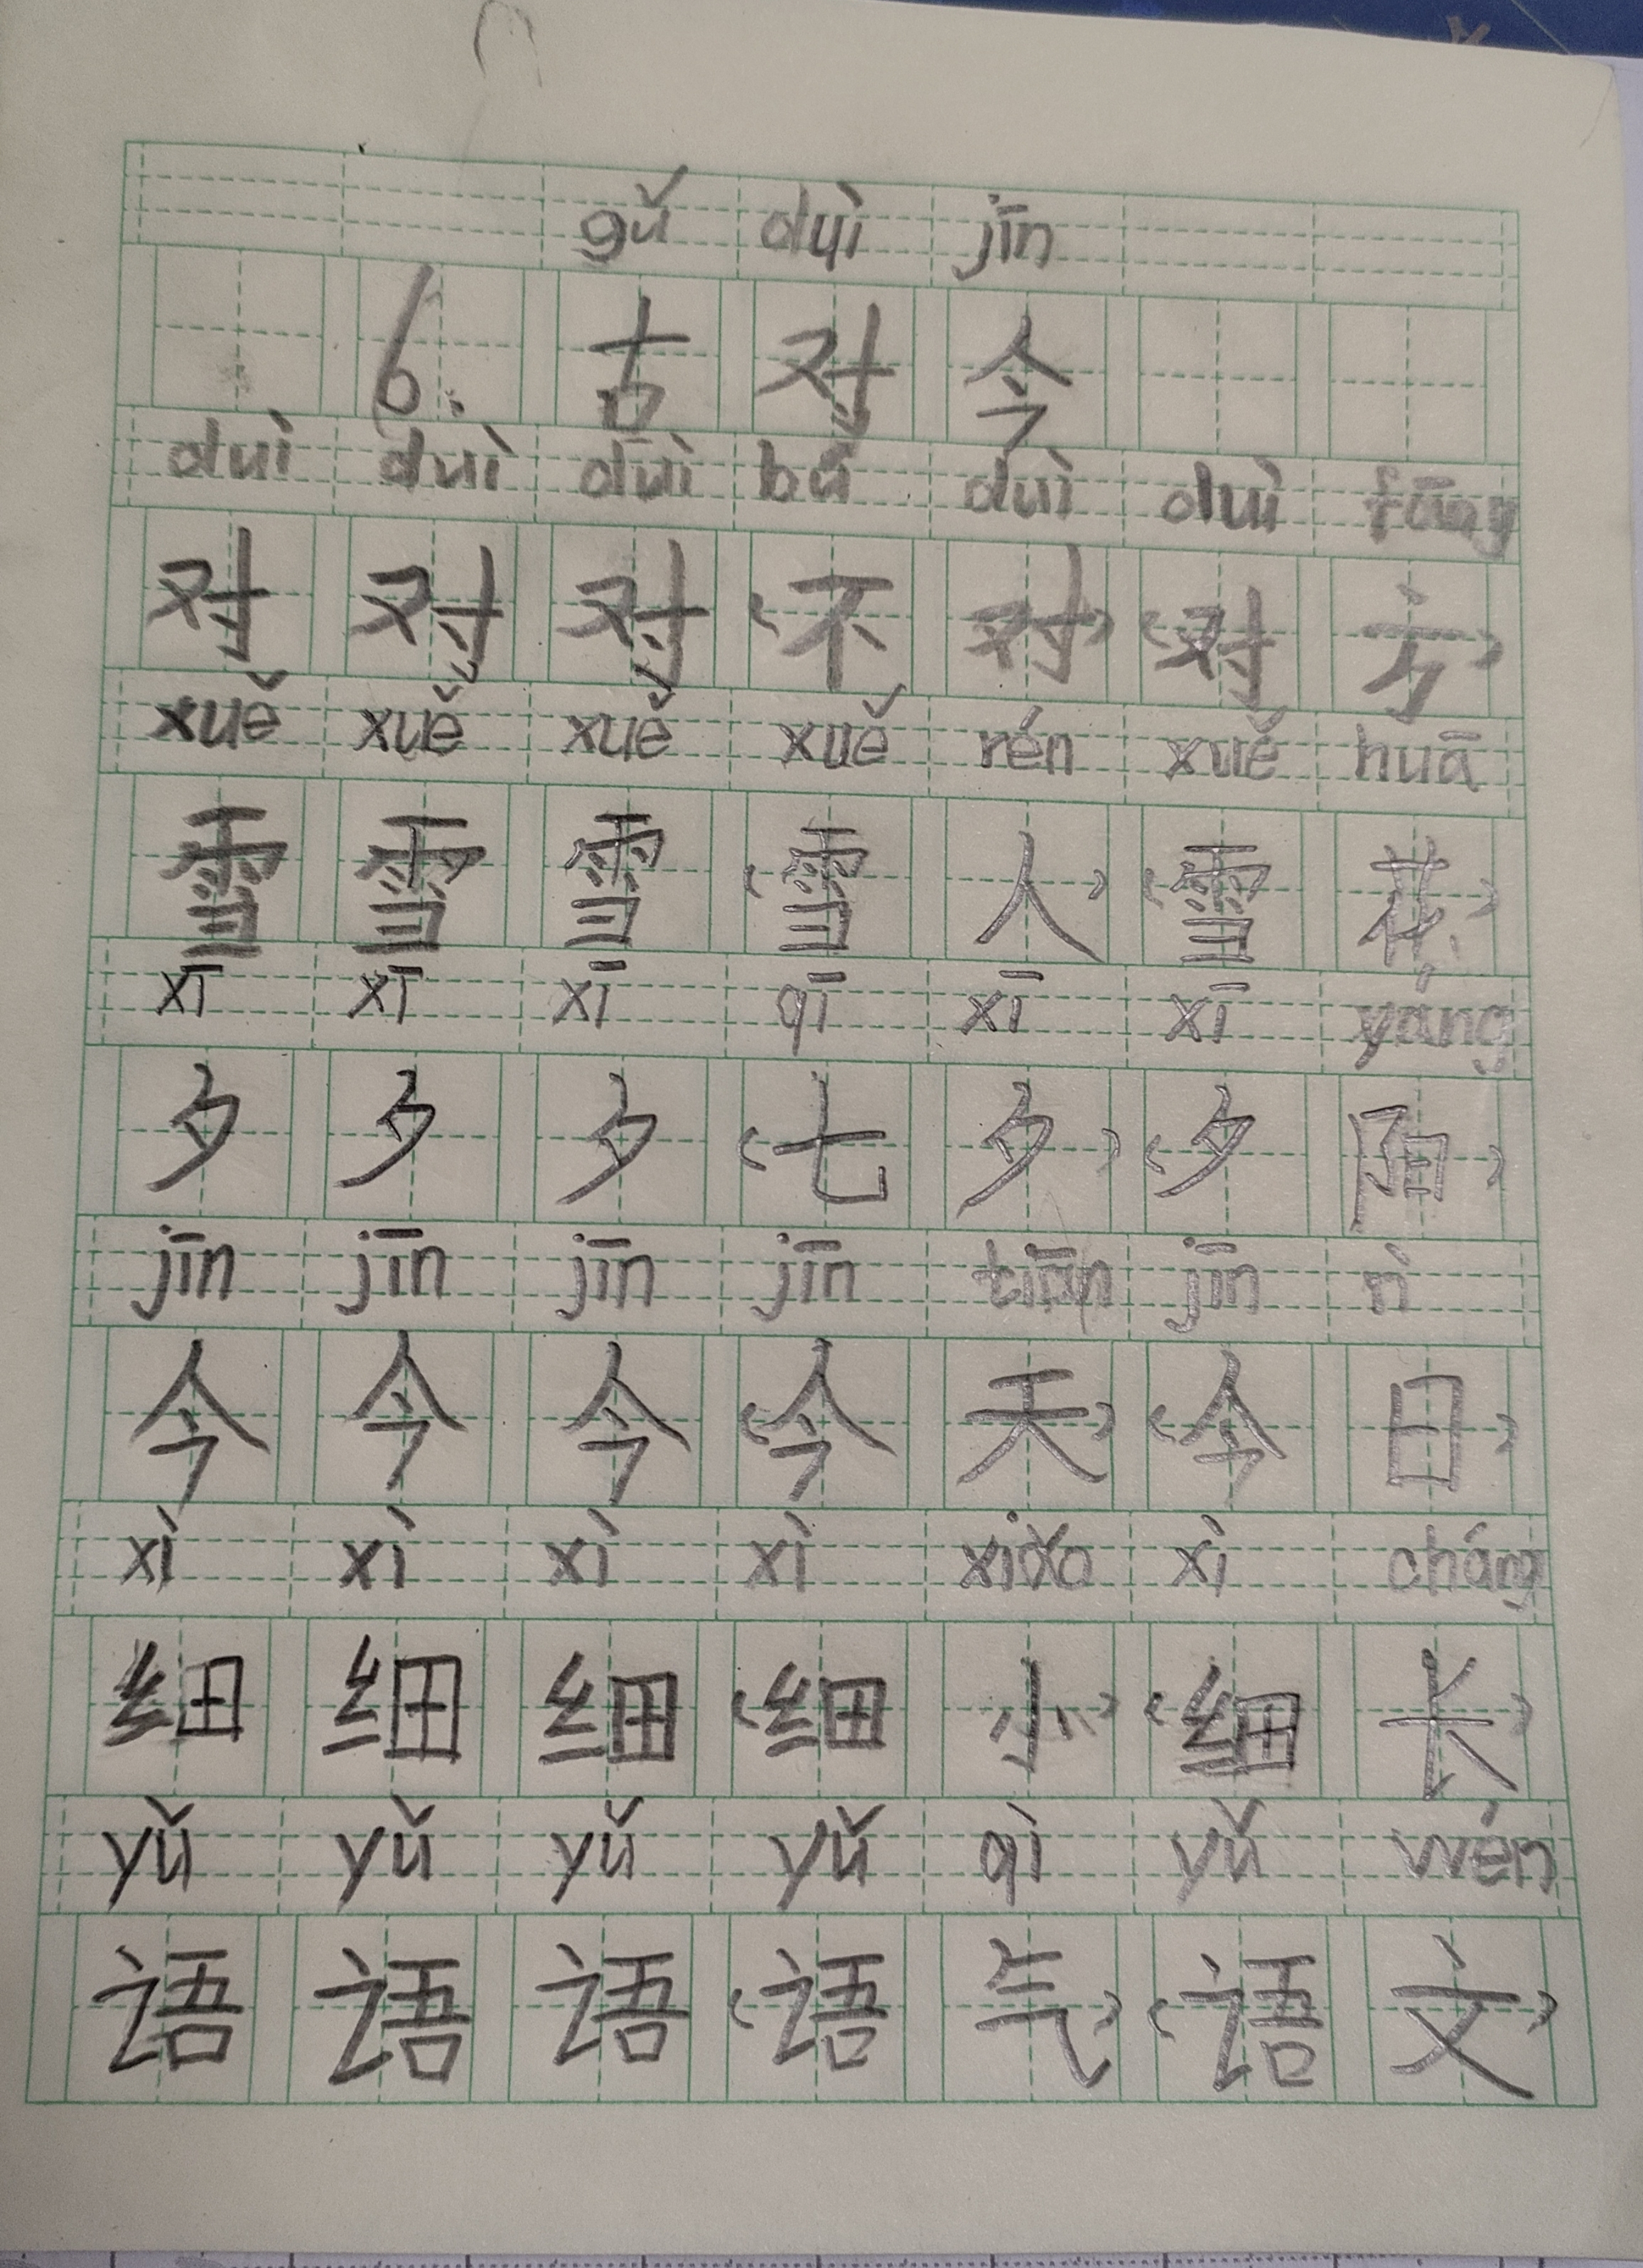 gǔ duì jīn
6. 古 对 今
duì duì duì bú duì duì fāng
对 对 对 (不 对) (对 方)
xuě xuě xuě xuě rén xuě huā
雪 雪 雪 (雪 人) (雪 花)
xī xī xī qī xī xī yáng
夕 夕 夕 (七 夕) (夕 阳)
jīn jīn jīn jīn tiān jīn rì
今 今 今 (今 天) (今 日)
xì xì xì xì xiǎo xì cháng
细 细 细 (细 小) (细 长)
yǔ yǔ yǔ yǔ qì yǔ wén
语 语 语 (语 气) (语 文)